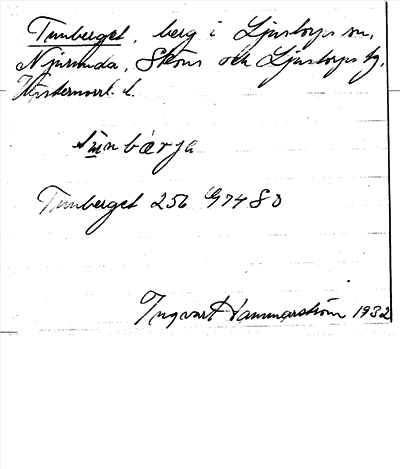 Tunberget, berg i Ljustorps sn,
Njurunda, Sköns och Ljustorps tg,
Västernorrl. l.
tunbärja
Tunberget 256 G7480
Ingvart Hammarström 1932